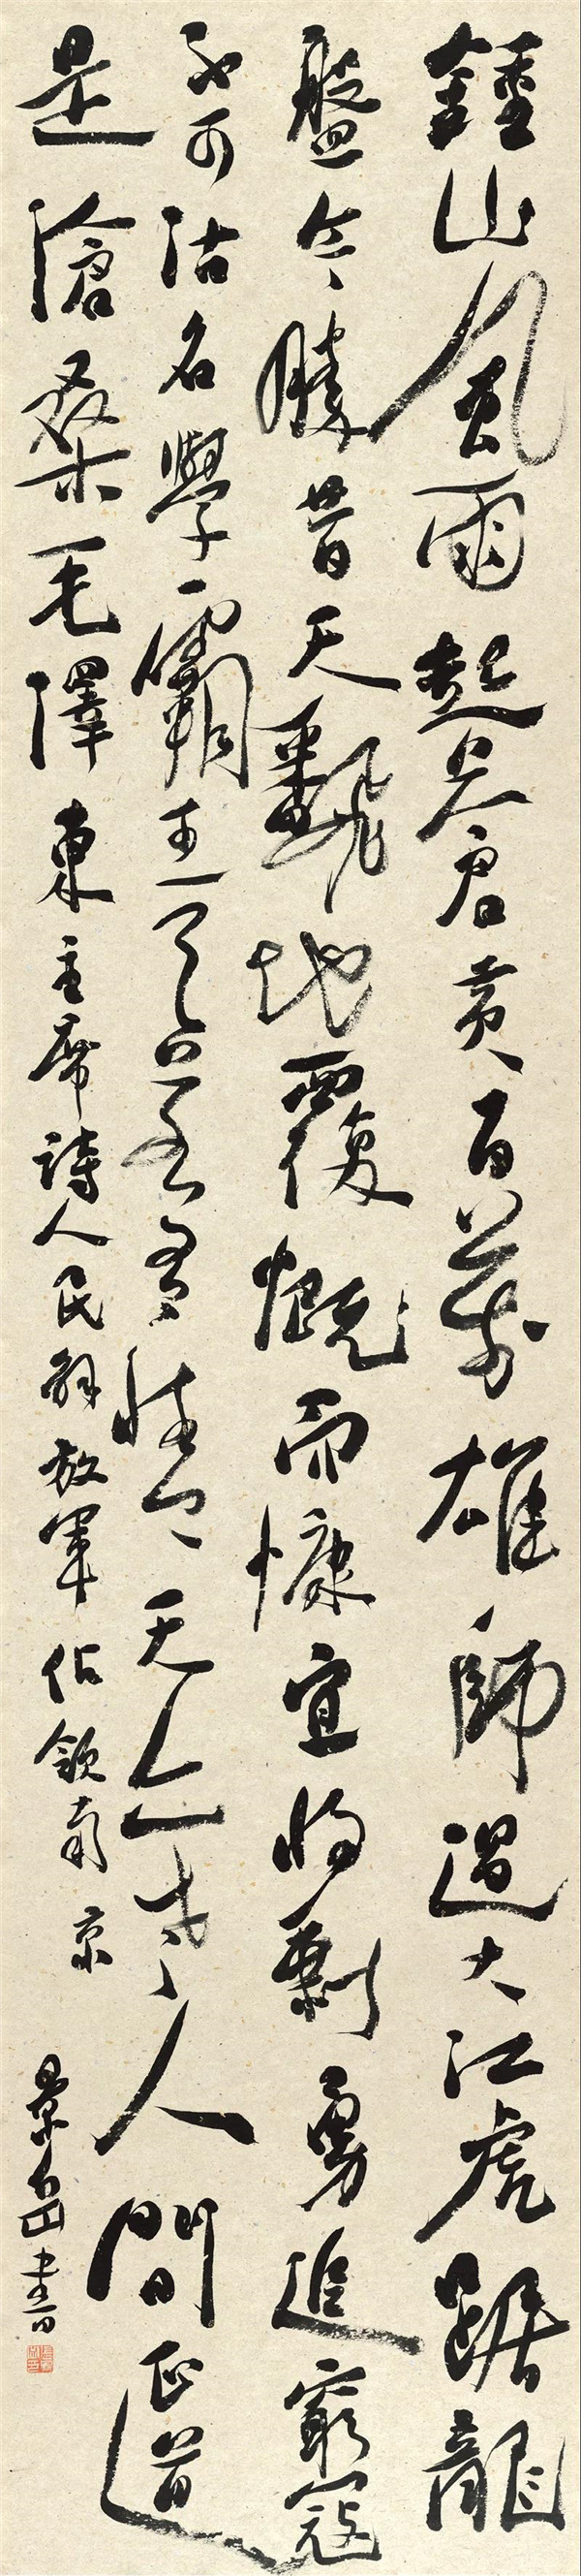 鍾山風雨起蒼黃百萬雄師過大江虎踞龍
盤今勝昔天飜地覆慨而慷宜將剩勇追窮寇
不可沽名學霸王天若有情天亦老人間正道
是滄桑毛澤東主席詩人民解放軍佔領南京
景岳書